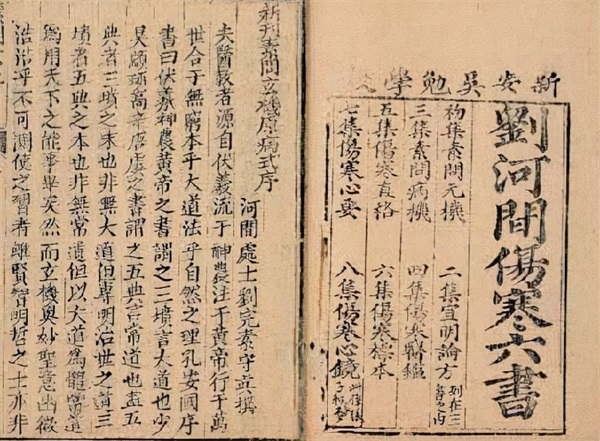 新安吳勉學校
劉河間傷寒六書
初集素問元機 二集宣明論方 列在三書之内
三集素問病機 四集傷寒醫鑑
五集傷寒直格 六集傷寒標本
七集傷寒心要 八集傷寒心鏡
新刊素問玄機原病式序
河間處士劉完素守真撰
夫醫教者源自伏羲流于神農注于黃帝行于萬
世合于無窮本乎大道法乎自然之理孔安國序
書曰伏羲神農黃帝之書謂之三墳言大道也少
昊顓頊高辛唐虞之書謂之五典言常道也蓋五
典者三墳之末也非無大道但專明治世之道三
墳者五典之本也非無常道但以大道為體常道
為用天下之能事畢矣然而玄機奥妙聖意幽微
浩浩乎不可測使之習者雖賢智明哲之士亦非